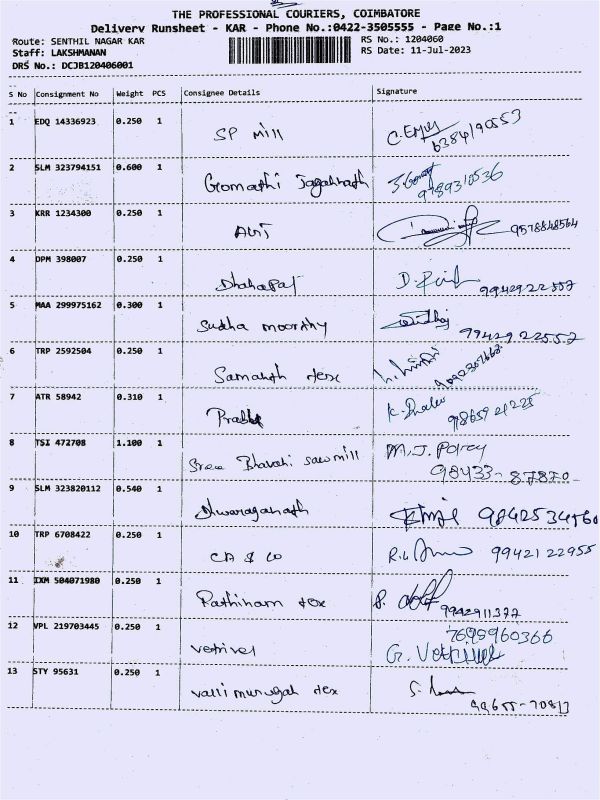 THE PROFESSIONAL COURIERS, COIMBATORE
Delivery Runsheet - KAR - Phone No.:0422-3505555 - Page No.:1
Route: SENTHIL NAGAR KAR
RS No.: 1204060
Staff: LAKSHMANAN
RS Date: 11-Jul-2023
DRS No.: DCJB120406001
S No Consignment No Weight PCS Consignee Details Signature
1 EDQ 14336923 0.250 1 SP mill
6384190553
2 SLM 323794151 0.600 1 Gomathi Jaganath
9789310536
3 KRR 1234300 0.250 1
9578848564
4 DPM 398007 0.250 1 Dhanapal D.
9942922557
5 MAA 299975162 0.300 1 Sudha moorthy
9942922557
6 TRP 2592504 0.250 1 Samanth tex
7 ATR 58942 0.310 1
9865921225
8 TSI 472708 1.100 1 Sree Bhavani sawmill M.J.
98433-87870
9 SLM 323820112 0.540 1 Dwaraganath 9842534560
10 TRP 6708422 0.250 1 CA & CO R.L 9942122955
11 IXM 504071980 0.250 1 Rathinam tex
9942911377
12 VPL 219703445 0.250 1 vetrivel 7699960366
G.
13 STY 95631 0.250 1 valli murugan tex S.
99655-70817